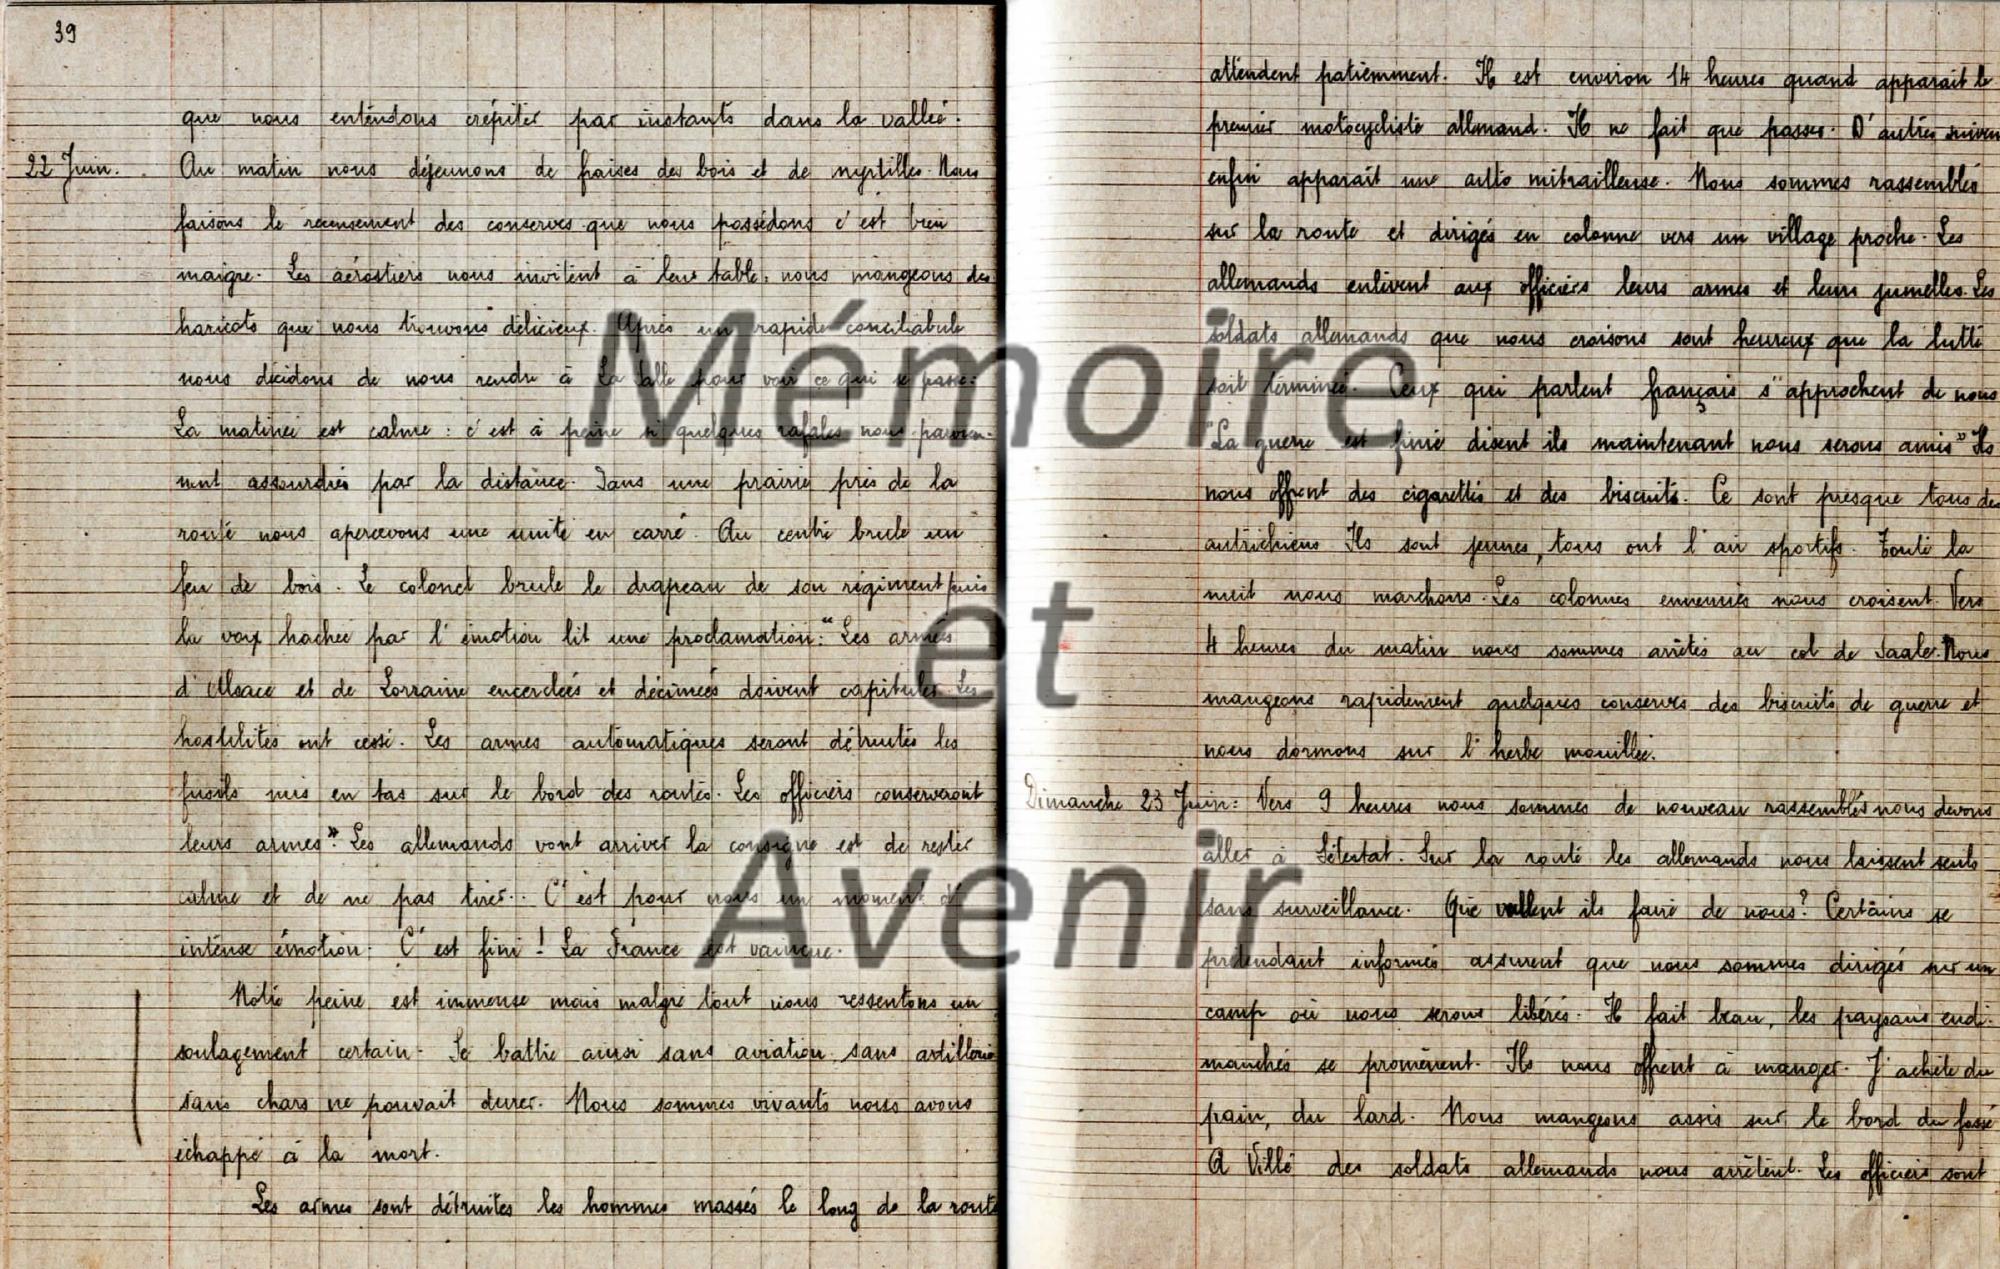 39
que nous entendons crépiter par instants dans la vallée.
22 Juin. Au matin nous déjeunons de fraises des bois et de myrtilles. Nous
faisons le recensement des conserves que nous possédons c'est bien
maigre. Les aérostiers nous invitent à leur table, nous mangeons des
haricots que nous trouvons délicieux. Après un rapide conciliabule
nous décidons de nous rendre à La Salle pour voir ce qui se passe.
La matinée est calme : c'est à peine si quelques rafales nous parvien-
nent assourdies par la distance. Dans une prairie près de la
route nous apercevons une unité en carré. Au centre brule un
feu de bois. Le colonel brule le drapeau de son régiment puis
la voix hachée par l'émotion lit une proclamation: "Les armées
d'Alsace et de Lorraine encerclées et décimées doivent capituler. Les
hostilités ont cessé. Les armes automatiques seront détruites les
fusils mis en tas sur le bord des routes. Les officiers conserveront
leurs armes". Les allemands vont arriver la consigne est de rester
calme et de ne pas tirer.. C'est pour nous un moment d'
intense émotion. C'est fini ! La France est vaincue.
Notre peine est immense mais malgré tout nous ressentons un
soulagement certain. Se battre ainsi sans aviation sans artillerie
sans chars ne pouvait durer. Nous sommes vivants nous avons
échappé à la mort.
Les armes sont détruites les hommes massés le long de la route
attendent patiemment. Il est environ 14 heures quand apparait le
premier motocycliste allemand. Il ne fait que passer. D'autres suivent
enfin apparait une auto mitrailleuse. Nous sommes rassemblés
sur la route et dirigés en colonne vers un village proche. Les
allemands enlèvent aux officiers leurs armes et leurs jumelles. Les
soldats allemands que nous croisons sont heureux que la lutte
soit terminée. Ceux qui parlent français s'approchent de nous
"La guerre est finie disent ils maintenant nous serons amis" Ils
nous offrent des cigarettes et des biscuits. Ce sont presque tous des
autrichiens Ils sont jeunes, tous ont l'air sportifs. Toute la
nuit nous marchons. Les colonnes ennemies nous croisent. Vers
4 heures du matin nous sommes arrêtés au col de Saales. Nous
mangeons rapidement quelques conserves des biscuits de guerre et
nous dormons sur l'herbe mouillée.
Dimanche 23 Juin: Vers 9 heures nous sommes de nouveau rassemblés nous devons
aller à Sélestat. Sur la route les allemands nous laissent seuls
sans surveillance. Que veulent ils faire de nous? Certains se
prétendant informés assurent que nous sommes dirigés sur un
camp où nous serons libérés. Il fait beau, les paysans endi-
manchés se promènent. Ils nous offrent à manger. J'achète du
pain, du lard. Nous mangeons assis sur le bord du fossé
A Villé des soldats allemands nous arrêtent. Les officiers sont
Mémoire
et
Avenir